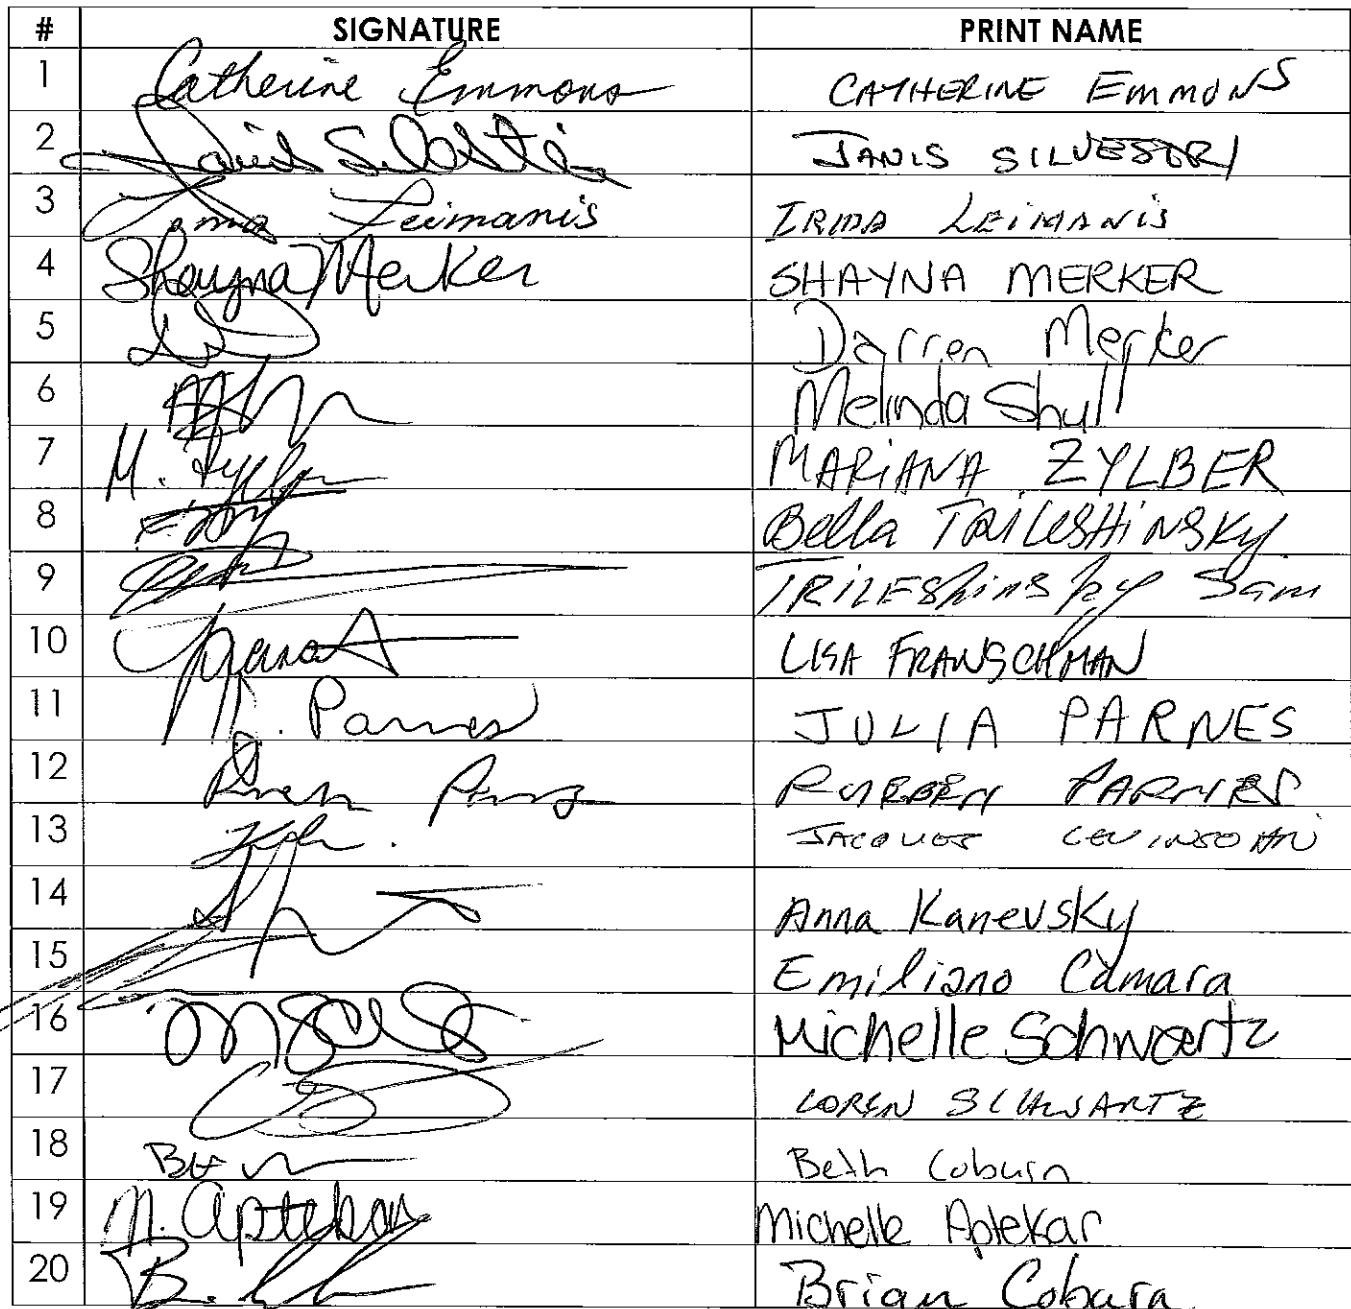 # SIGNATURE PRINT NAME
1 Catherine Emmons CATHERINE EMMONS
2 JANIS SILVESTRI
3 Irma Leimanis IRMA LEIMANIS
4 Shayna Merker SHAYNA MERKER
5 Darren Merker
6 Melinda Shull
7 M. MARIANA ZYLBER
8 Bella TRILESHINSKY
9 TRILEShinsky Sam
10 LISA FRANSCHMAN
11 Parnes JULIA PARNES
12 PARNES
13 JACQUES LEVINSOHN
14 Anna Kanevsky
15 Emiliano Camara
16 Michelle Schwartz
17 LOREN SCHWARTZ
18 Beth Coburn
19 M. Aptekar Michelle Aptekar
20 Brian Coburn